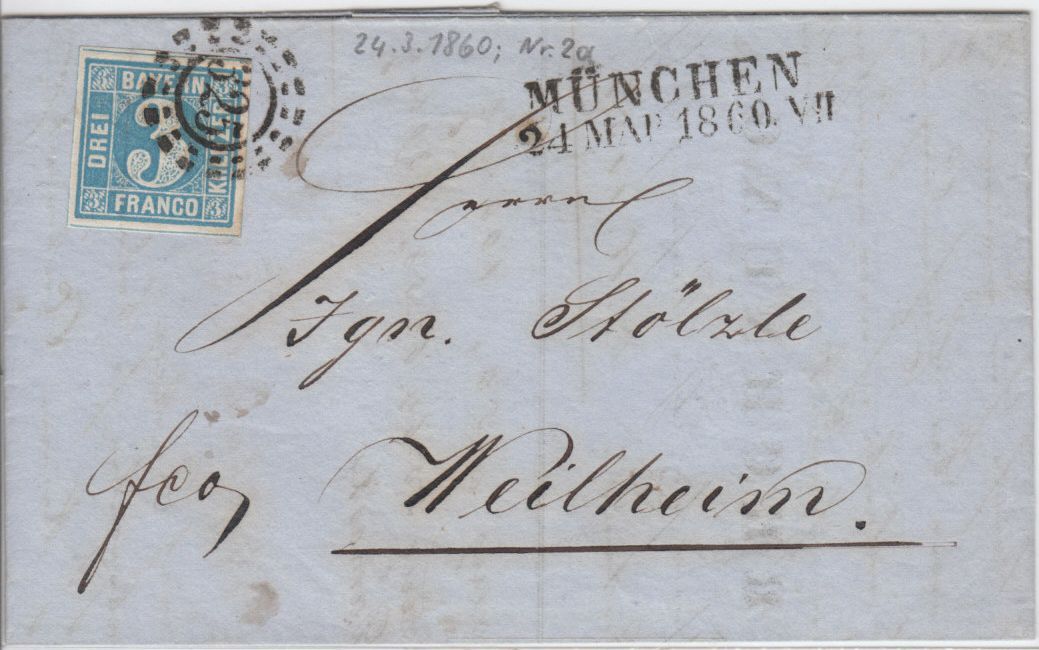 24.3.1860; Nr. 2a
BAYERN
DREI
3
KREUZER
FRANCO
325
MÜNCHEN
24 MAR 1860. VII
Herrn
Ign. Stölzle
fco, Weilheim.